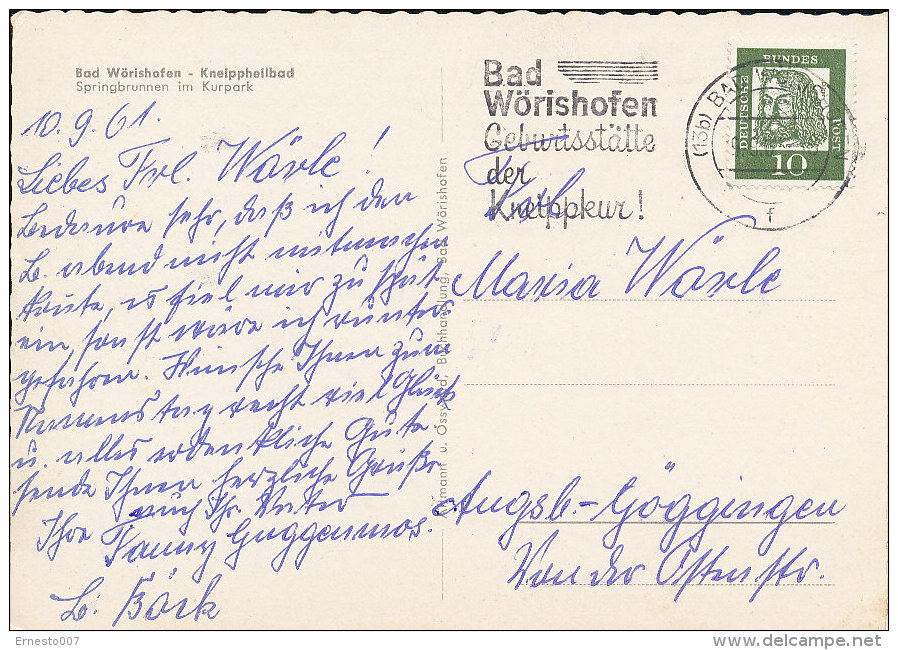 Bad Wörishofen - Kneippheilbad
Springbrunnen im Kurpark
10.9.61.
Liebes Frl. Wärle!
Bedaure sehr, daß ich den
B. abend nicht mitmachen
konnte, es fiel mir zu spät
ein sonst wäre ich runter
gefahren. Wünsche Ihnen zum
Namenstag recht viel Glück
u. alles erdenkliche Gute.
sende Ihnen herzliche Grüße
auch Ihr. Vater
Ihre Fanny Guggenmos.
b. Böck
u. Osswald, Buchhandlung, Bad Wörishofen
Bad
Wörishofen
Geburtsstätte
der
Kneippkur!
(13b) BAD
f
DEUTSCHE BUNDESPOST
10
Frl.
Maria Wärle
Augsb-Göggingen
Von der Ostenstr.
Ernesto007
www.delcampe.net